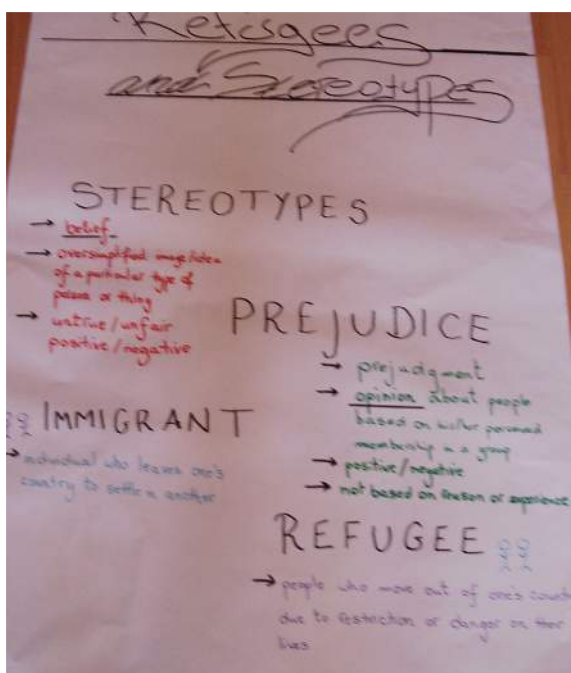 Refugees
and Stereotypes
STEREOTYPES
→ belief
→ oversimplified image/idea
of a particular type of
person or thing
→ untrue/unfair
positive/negative
PREJUDICE
→ prejudgment
→ opinion about people
based on his/her perceived
membership in a group
→ positive/negative
→ not based on reason or experience
IMMIGRANT
→ individual who leaves one's
country to settle in another
REFUGEE
→ people who move out of one's
due to restriction or danger on their
lives